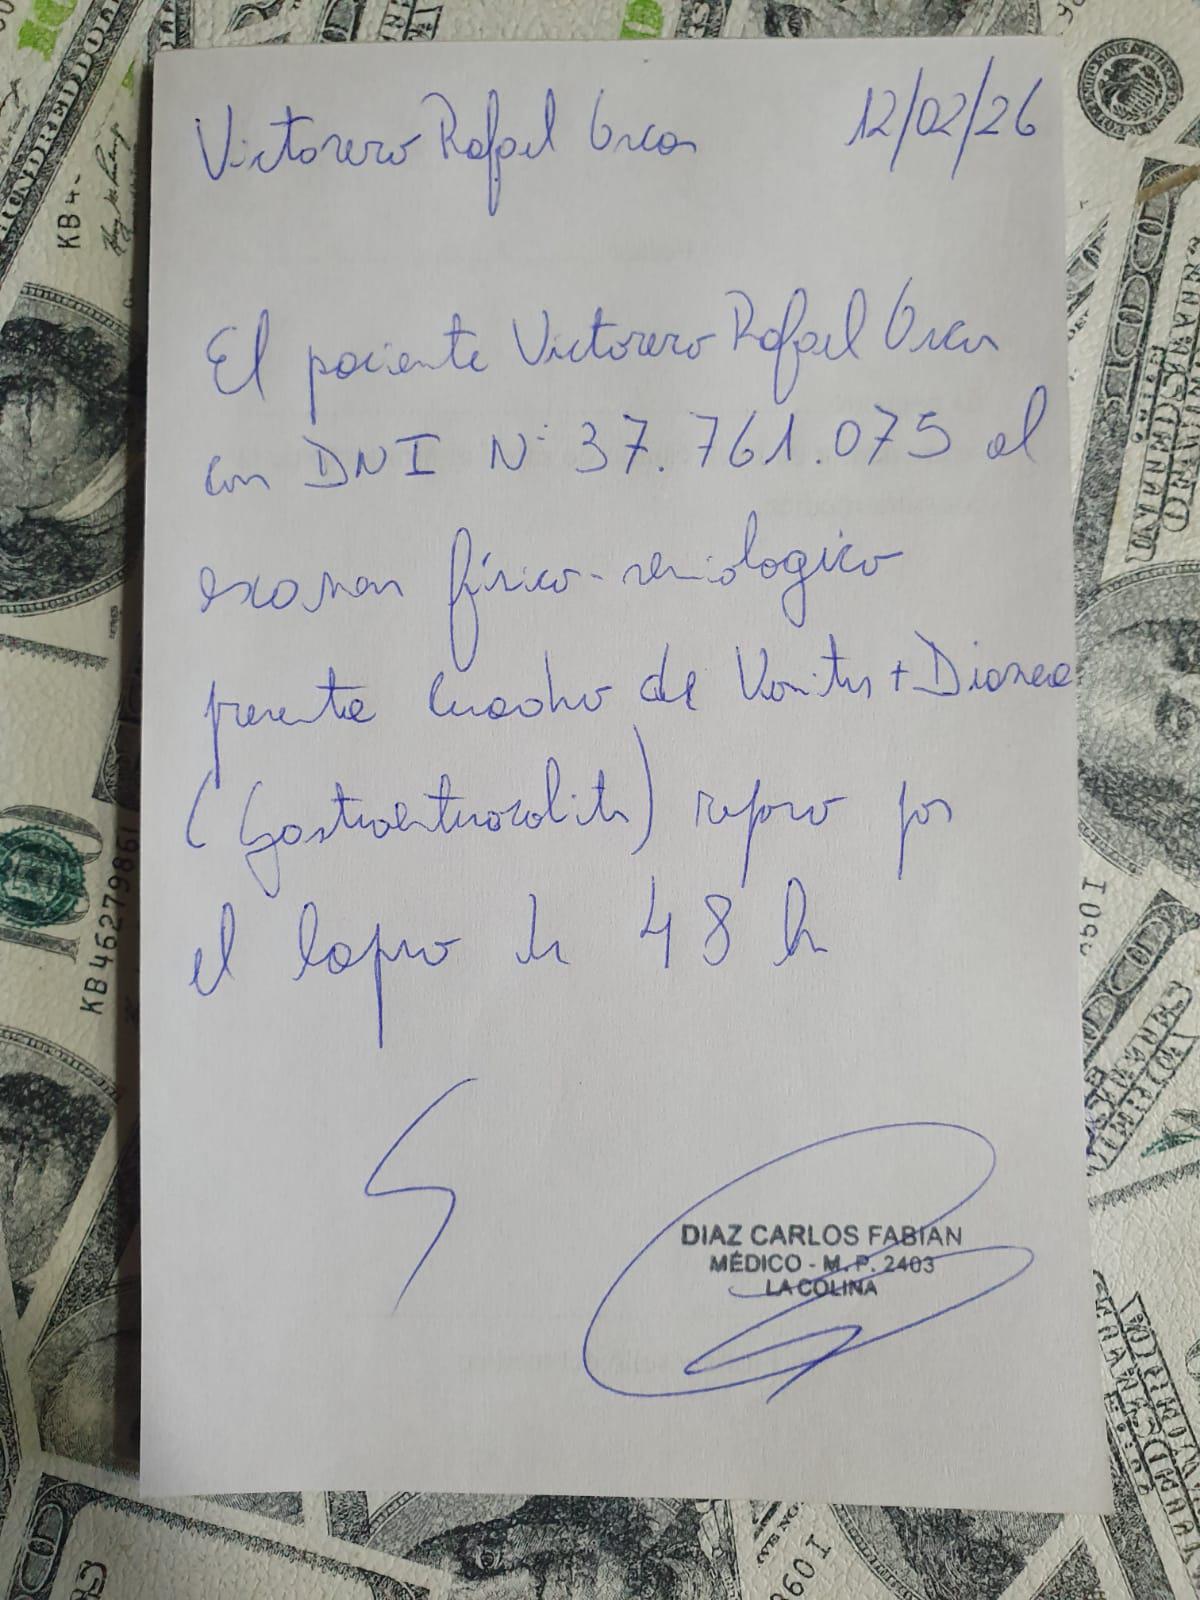 Victorero Rafael Oscar 12/02/26
El paciente Victorero Rafael Oscar
con DNI N° 37.761.075 al
examen físico-semiologico
presenta cuadro de Vomitos + Diarrea
(Gastroenterocolitis) reposo por
el lapso de 48 h
DIAZ CARLOS FABIAN
MÉDICO - M. P. 2403
LA COLINA
KB46279861
KB4